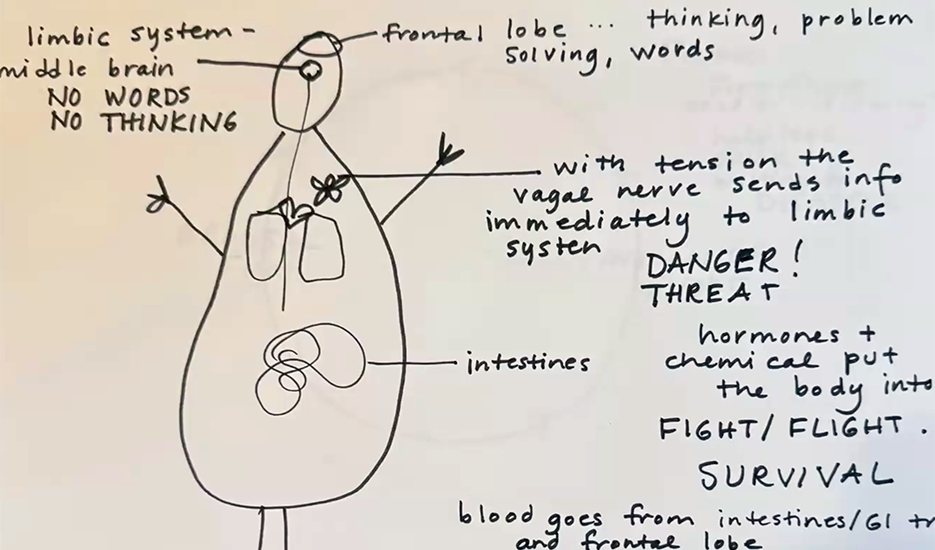 limbic system -
middle brain
NO WORDS
NO THINKING
frontal lobe ... thinking, problem
solving, words
with tension the
vagal nerve sends info
immediately to limbic
systen
DANGER!
THREAT
intestines
hormones +
chemical put
the body into
FIGHT/ FLIGHT .
SURVIVAL
blood goes from intestines/GI tr
and frontal lobe